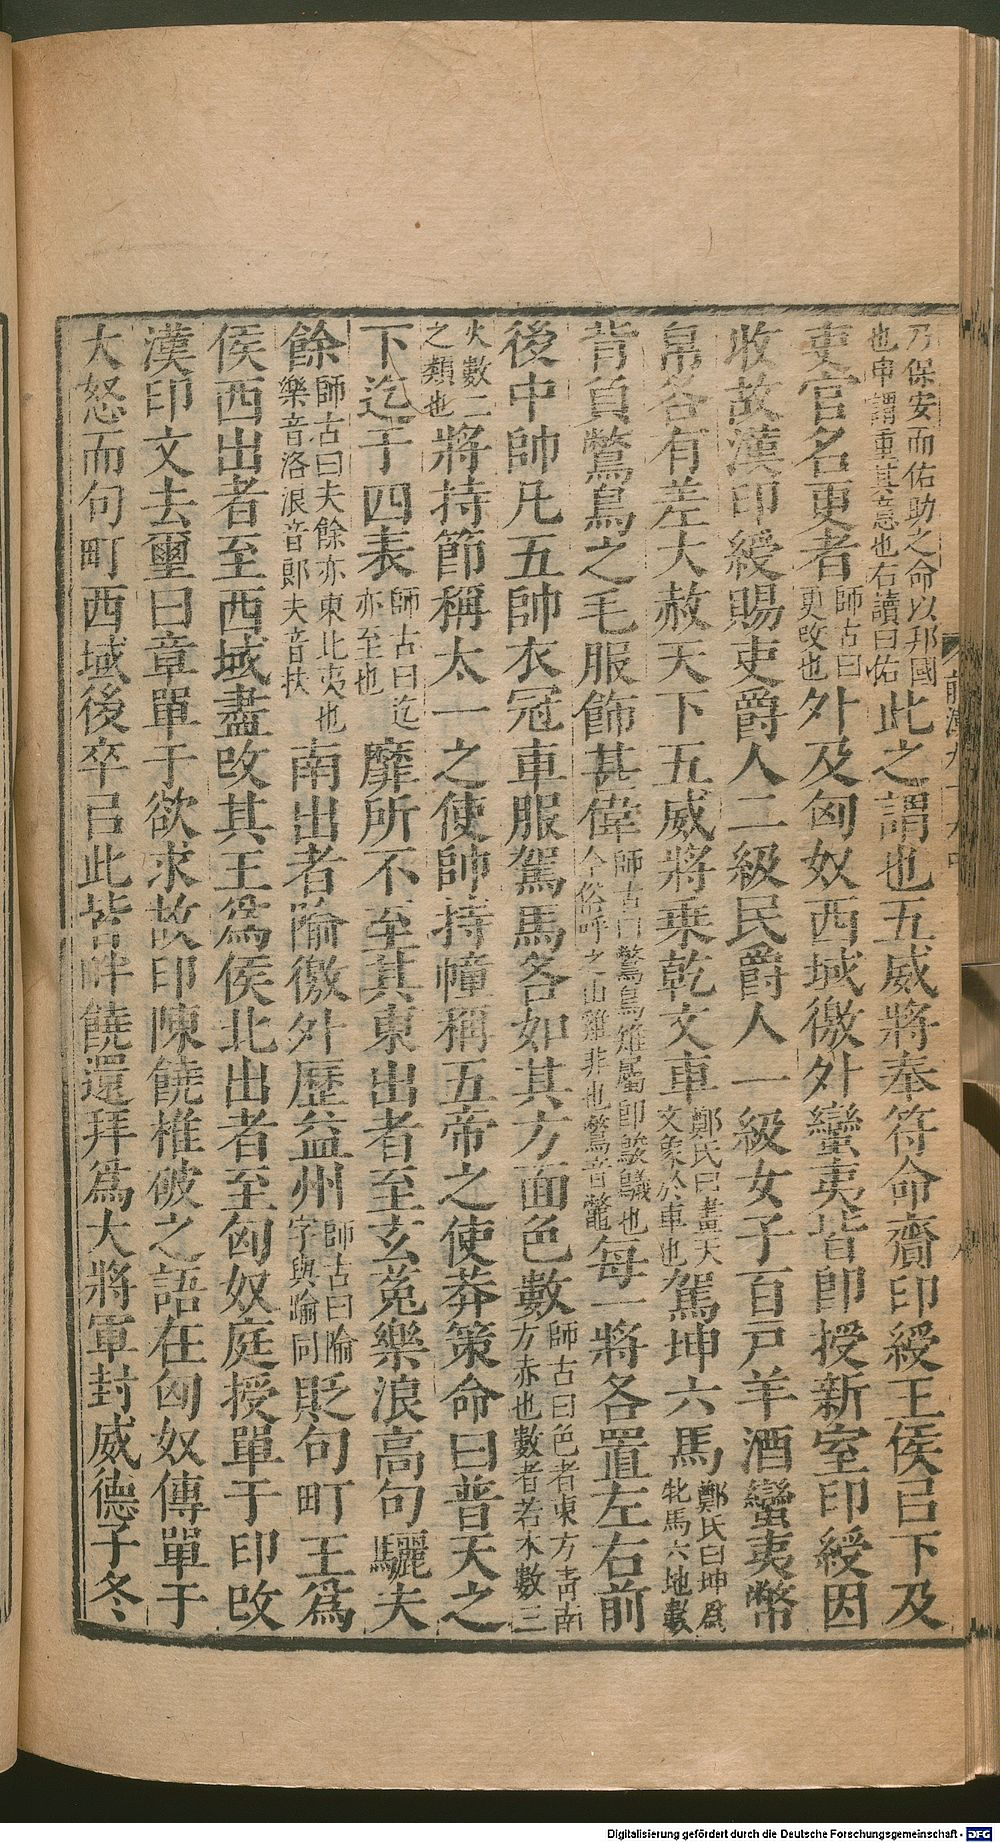 乃保安而佑助之命以邦國也申謂重其意也右讀曰佑此之謂也五威將奉符命齎印綬王侯㠯下及
吏官名更者師古曰更改也外及匈奴西域徼外蠻夷皆卽授新室印綬因
收故漢印綬賜吏爵人二級民爵人一級女子百戸羊酒蠻夷幣
帛各有差大赦天下五威將乘乾文車鄭氏曰畫天文象於車也駕坤六馬鄭氏曰坤爲牝馬六地數
背負鷩鳥之毛服飾甚偉師古曰鷩鳥雉屬卽鵔鸃也今俗呼之山雞非也鷩音鼈每一將各置左右前
後中帥凡五帥衣冠車服駕馬各如其方面色數師古曰色者東方靑南方赤也數者若木數三
火數二之類也將持節稱太一之使帥持幢稱五帝之使莽策命曰普天之
下迄于四表師古曰迄亦至也靡所不至其東出者至玄菟樂浪高句驪夫
餘師古曰夫餘亦東北夷也樂音洛浪音郎夫音扶南出者隃徼外歷益州師古曰隃字與踰同貶句町王爲
侯西出者至西域盡改其王爲侯北出者至匈奴庭授單于印改
漢印文去璽曰章單于欲求故印陳饒椎破之語在匈奴傳單于
大怒而句町西域後卒㠯此皆畔饒還拜爲大將軍封威德子冬
前漢九十九中
Digitalisierung gefördert durch die Deutsche Forschungsgemeinschaft - DFG